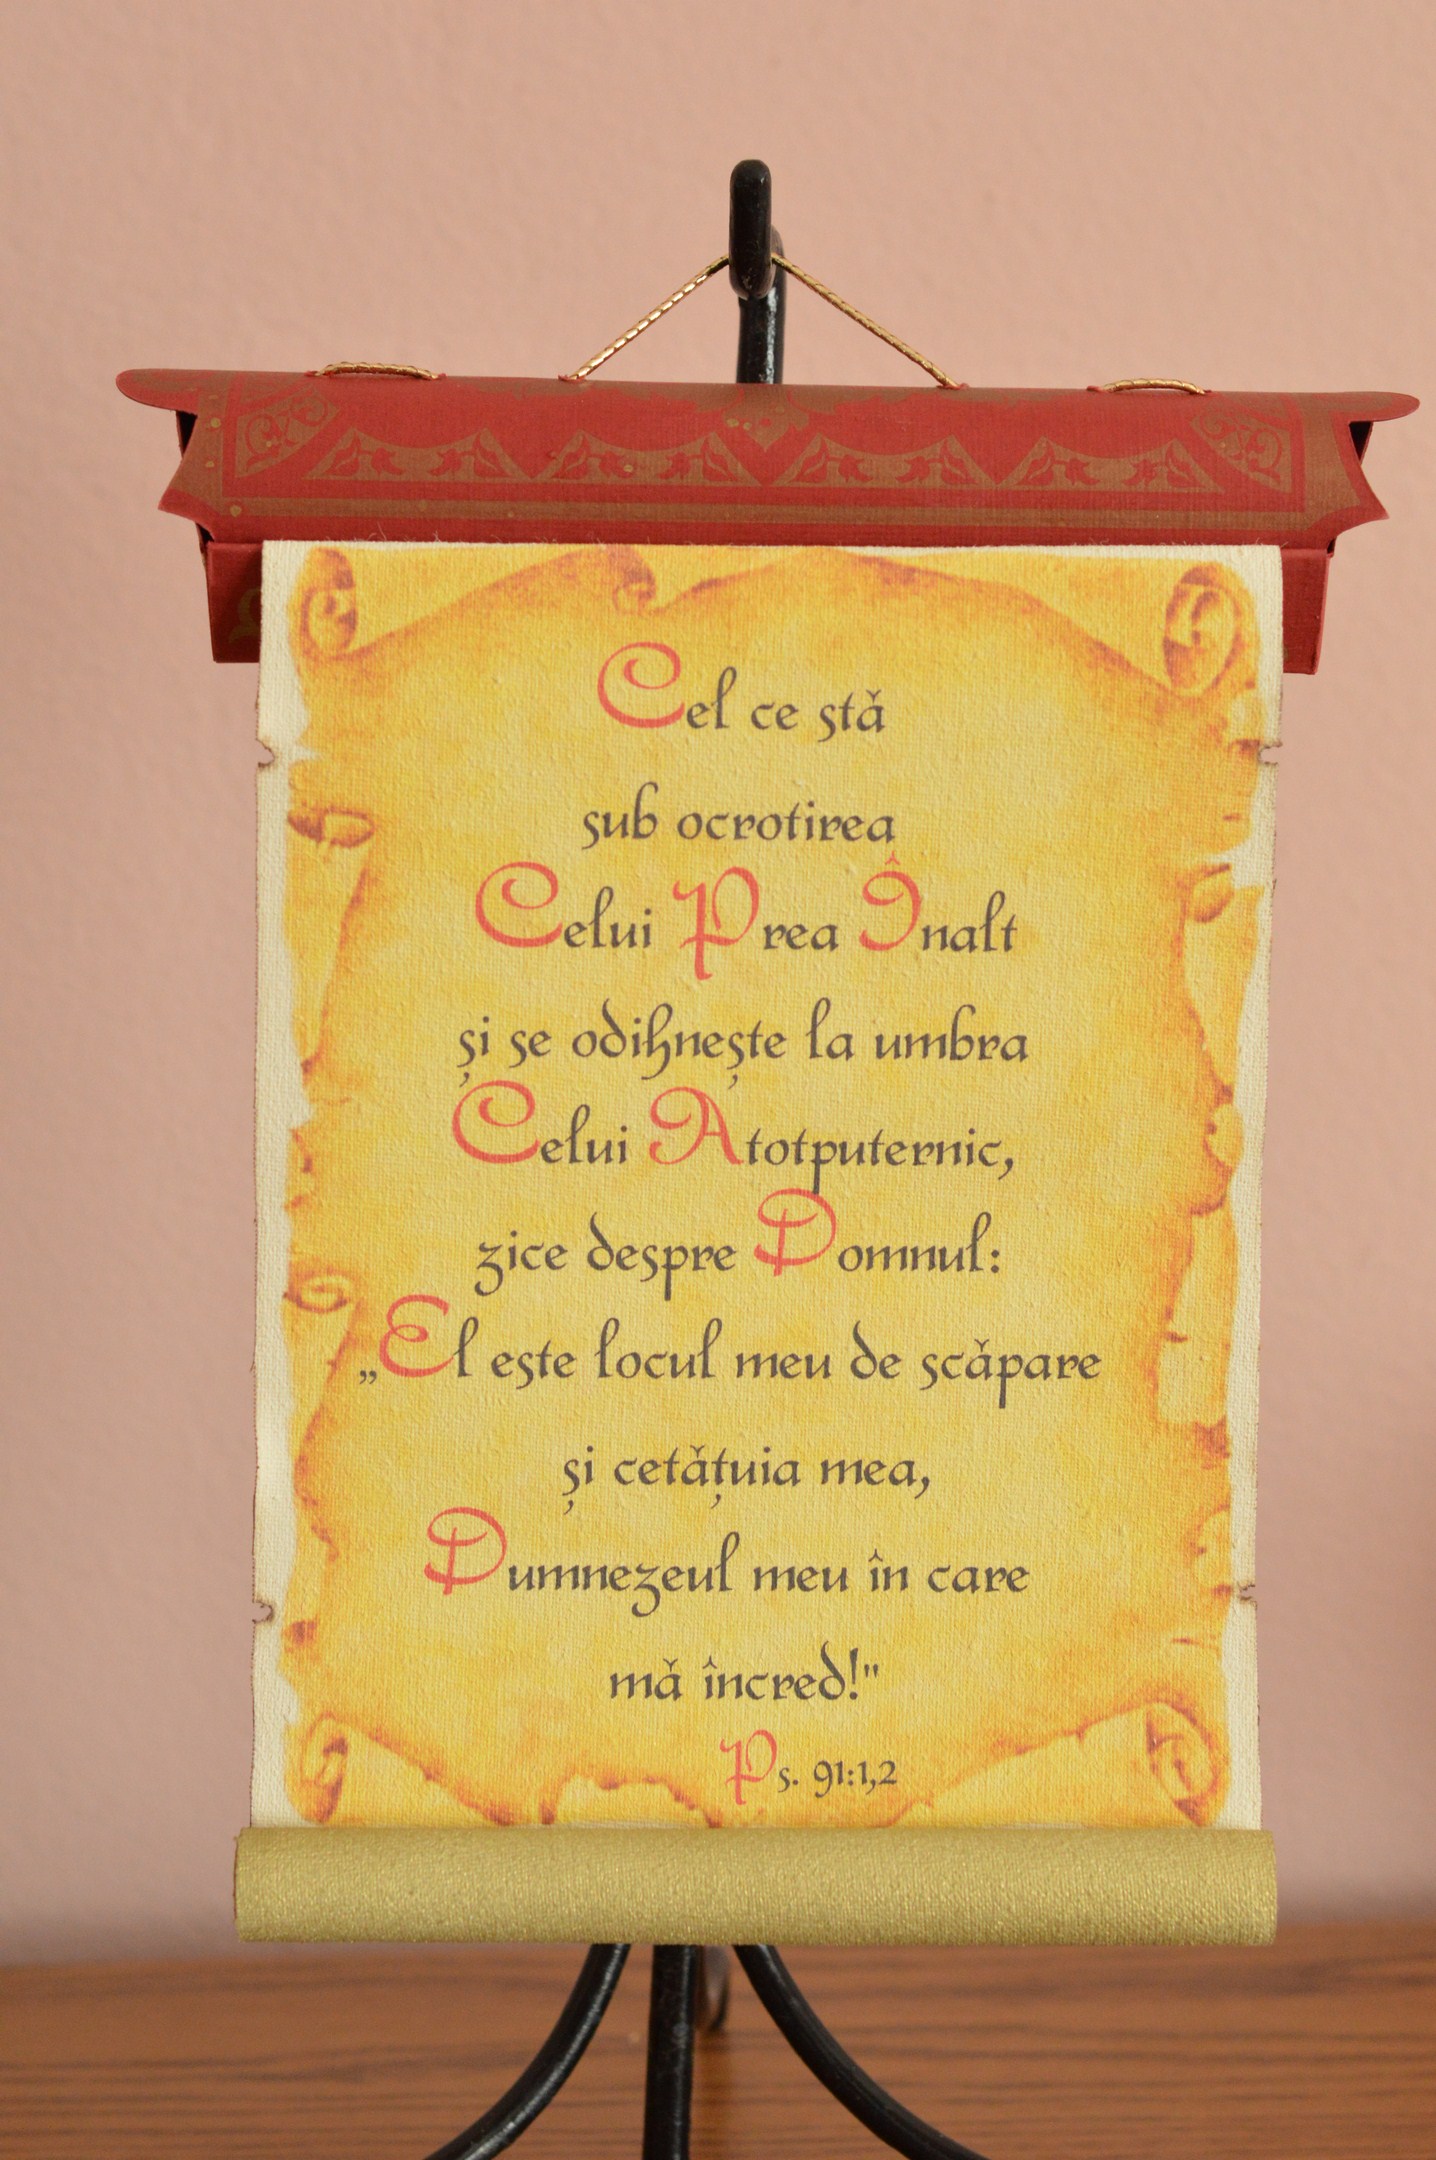 Cel ce stă
sub ocrotirea
Celui Prea Înalt
și se odihnește la umbra
Celui Atotputernic,
zice despre Domnul:
„El este locul meu de scăpare
și cetățuia mea,
Dumnezeul meu în care
mă încred!"
Ps. 91:1,2